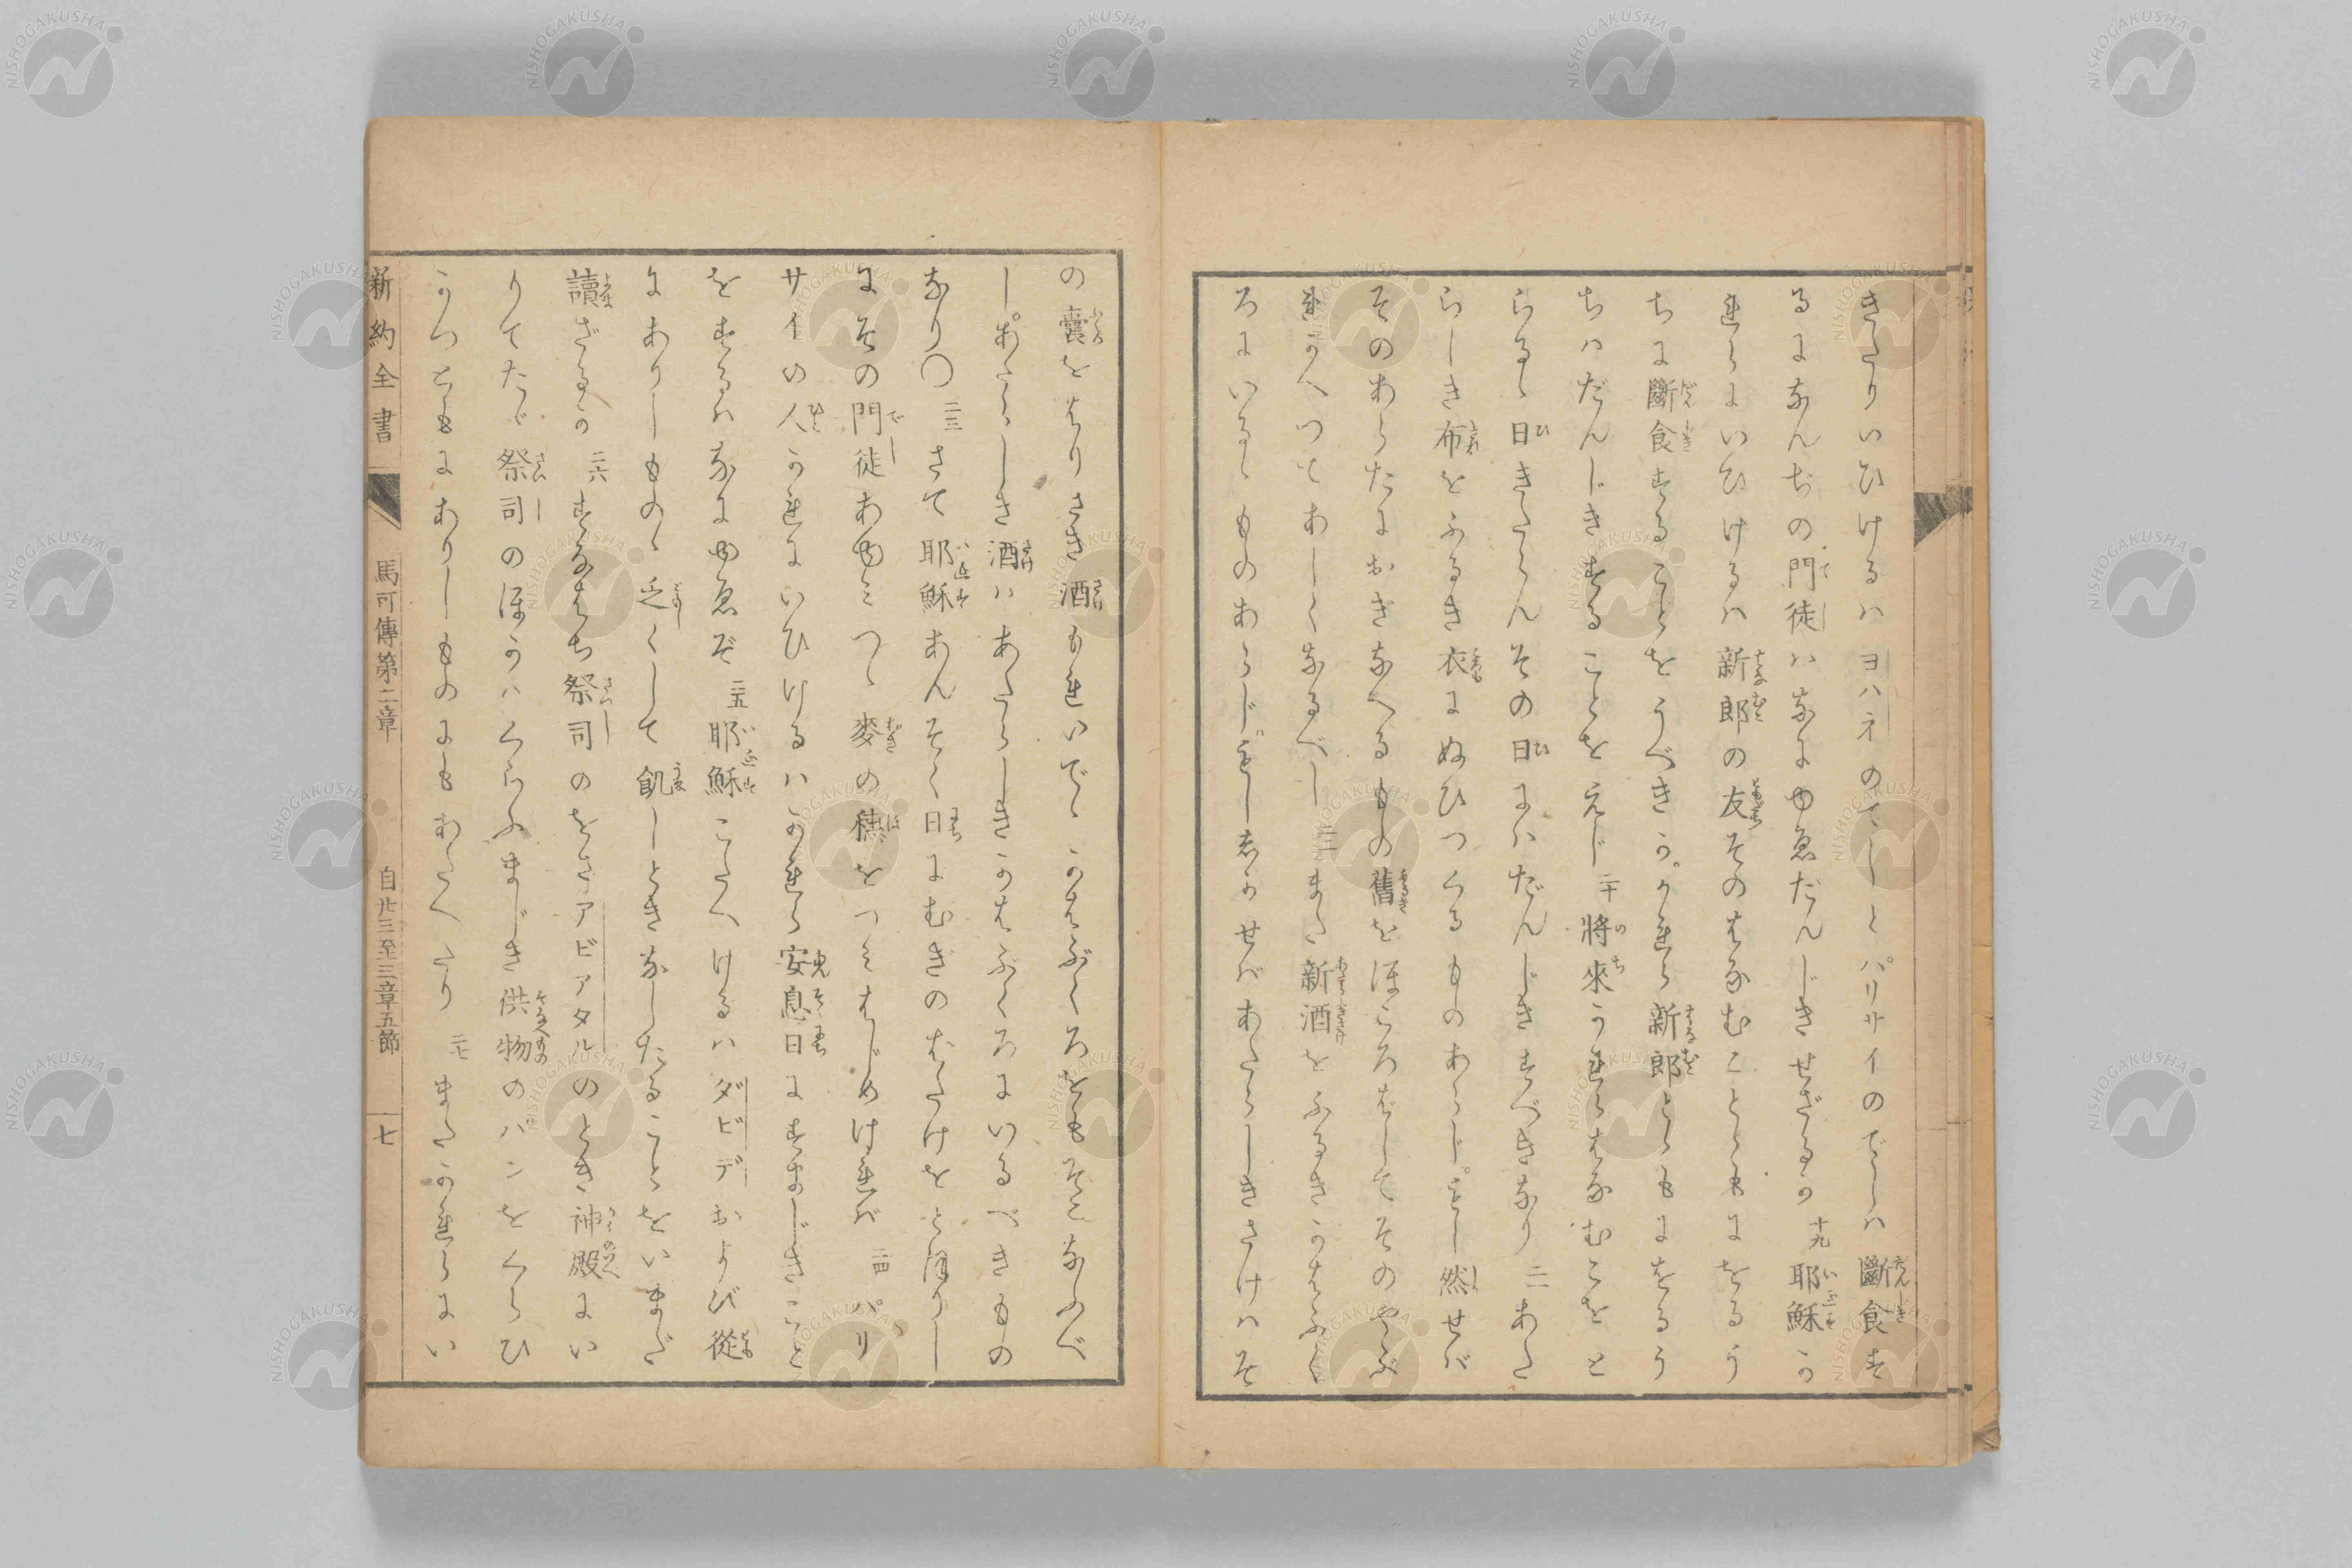 きたりいひけるハヨハネのでしとパリサイのでしハ斷食す
るになんぢの門徒ハなにゆゑだんじきせざるか 十九 耶穌か
れらにいひけるハ新郎の友そのはなむことゝもにをるう
ちに斷食することをうべきか。かれら新郎とゝもにをるう
ちハだんじきすることをえじ 二十 將來かれらはなむこをと
らるゝ日きたらんその日にハだんじきすべきなり 二一 あた
らしき布をふるき衣にぬひつくるものあらじ。もし然せば
そのあらたにおぎなへるもの舊をほころばしてそのやぶ
れかへつてあしくなるべし 二二 また新酒をふるきかはぶく
ろにいるゝものあらじ。もししかせばあたらしきさけハそ
の嚢をはりさき酒もれいでゝかはぶくろをもそこなふべ
し。あたらしき酒ハあたらしきかはぶくろにいるべきもの
なり〇 二三 さて耶穌あんそく日にむぎのはたけをとほりし
にその門徒あゆみつゝ麥の穂をつみはじめければ 二四 パリ
サイの人かれにいひけるハかれら安息日にすまじきこと
をするハなにゆゑぞ 二五 耶穌こたへけるハダビデおよび從
にありしものゝ乏くして飢しときなしたることをいまだ
讀ざるか 二六 すなはち祭司のをさアビアタルのとき神殿にい
りてたゞ祭司のほかハくらふまじき供物のパンをくらひ
かつともにありしものにもあたへたり 二七 またかれらにい
新約全書
馬可傳第二章
自廿三至三章五節
七